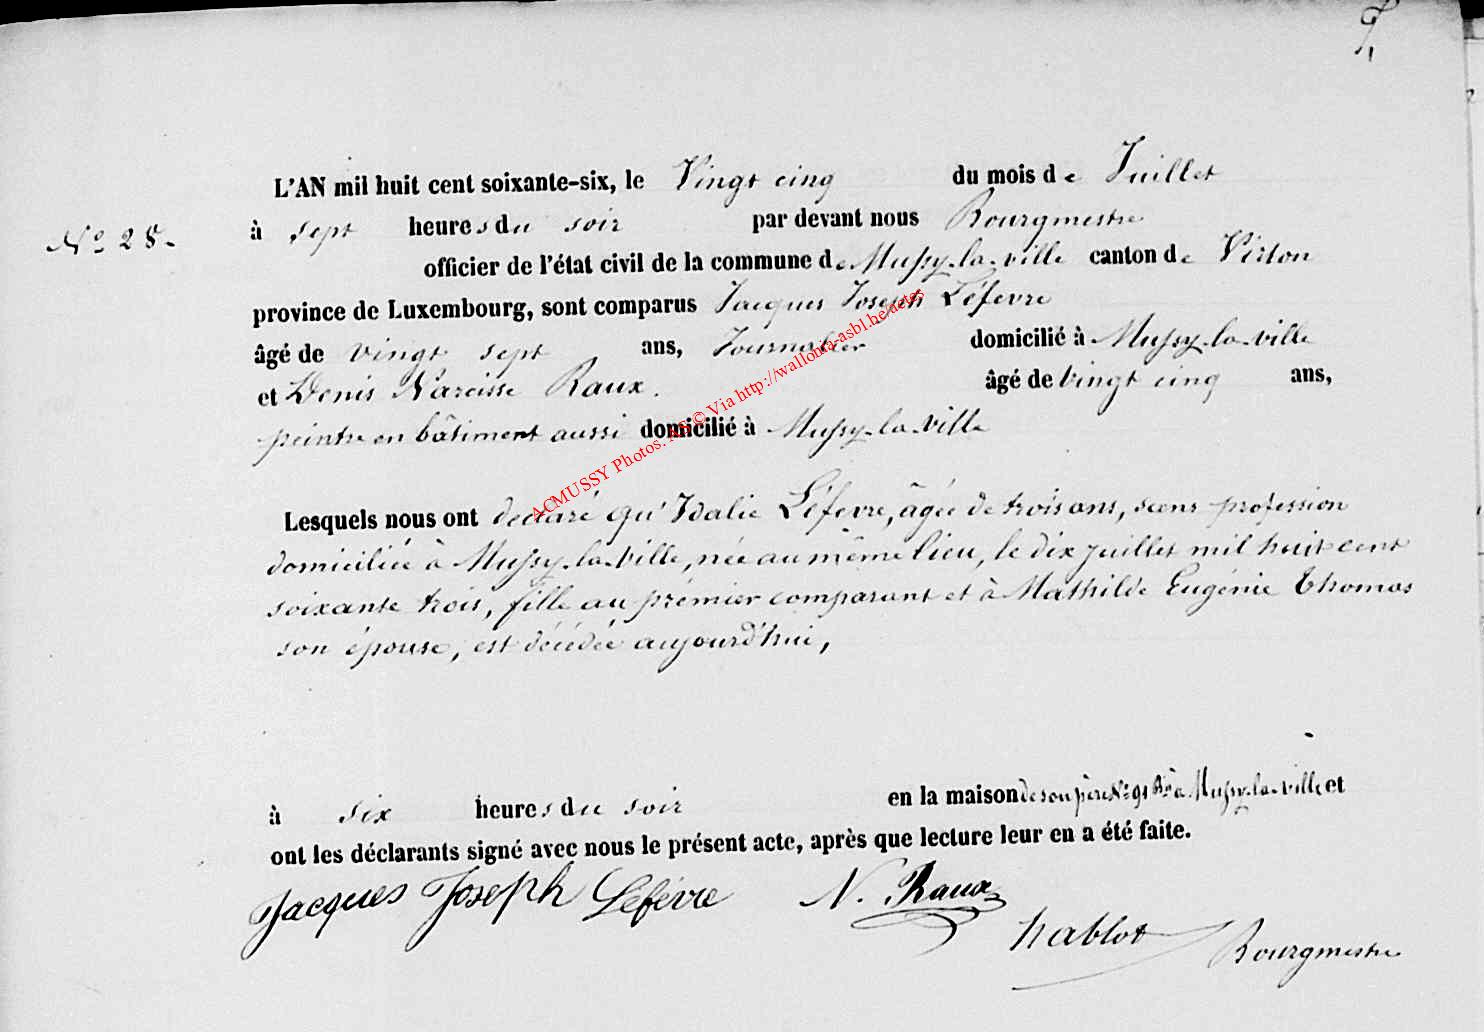 L'AN mil huit cent soixante-six, le Vingt cinq du mois de Juillet
N° 28.
à sept heures du soir par devant nous Bourgmestre
officier de l'état civil de la commune de Mussy-la-ville canton de Virton
province de Luxembourg, sont comparus Jacques Joseph Léfevre
âgé de vingt sept ans, Journalier domicilié à Mussy-la-ville
et Denis Narcisse Raux. âgé de vingt cinq ans,
peintre en bâtiment aussi domicilié à Mussy-la-ville
ACMUSSY Photos. © Via http://wallonia-asbl.be/actes
Lesquels nous ont déclaré qu'Idalie Léfevre, âgée de trois ans, sans profession
domiciliée à Mussy-la-Ville, née au même lieu, le dix juillet mil huit cent
soixante trois, fille au prémier comparant et à Mathilde Eugénie Thomas
son épouse, est décédée aujourd'hui,
à six heures du soir en la maison de son père N° 91 à Mussy-la-ville et
ont les déclarants signé avec nous le présent acte, après que lecture leur en a été faite.
Jacques Joseph Lefévre N. Raux
Nablot Bourgmestre